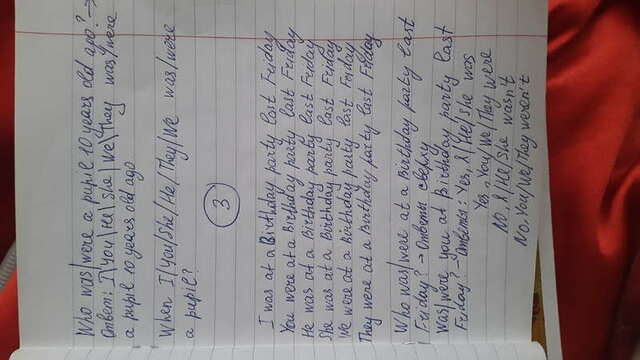 Who was/were a pupil 10 years old ago? →
Ответ: I\You\He\She\We\They was/were
a pupil 10 years old ago
When I/You/She/He/They/We was/were
a pupil?
3
I was at a Birthday party last Friday
You were at a Birthday party last Friday
He was at a Birthday party last Friday
She was at a Birthday party last Friday
We were at a Birthday party last Friday
They were at a Birthday party last Friday
Who was/were at a Birthday party last
Friday? → Ответы сверху
Was/were you at Birthday party last
Friday? → Ответы: Yes, I/He/She was
Yes, You/We/They were
No, I/He/She wasn't
No, You/We/They weren't